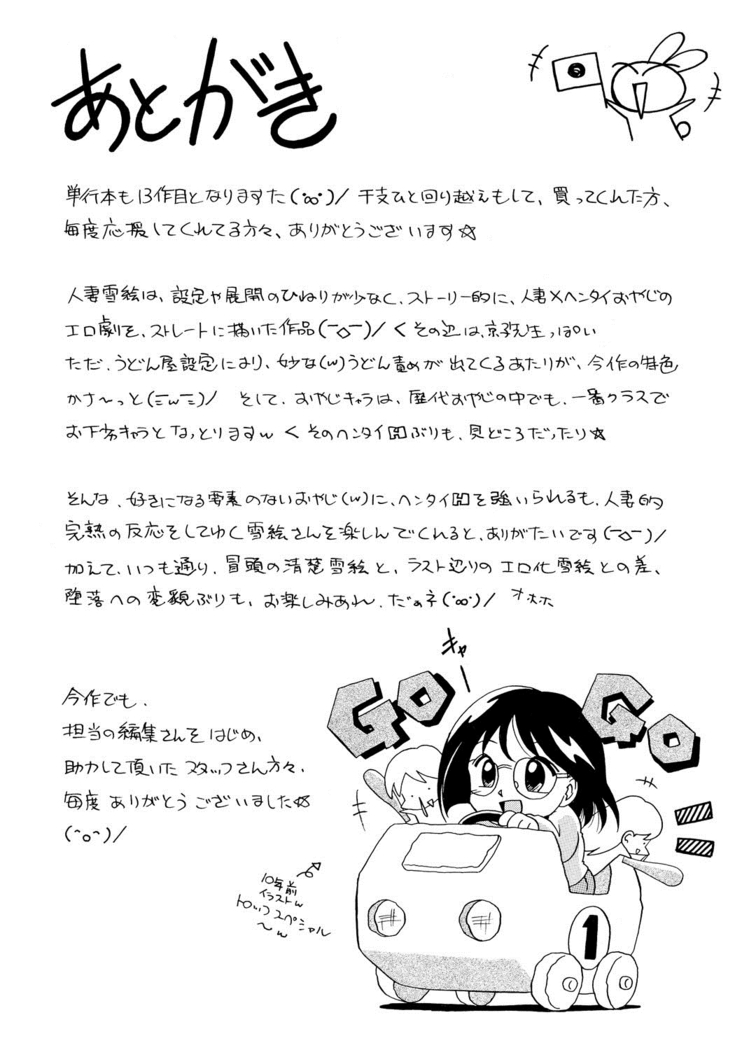 あとがき
単行本も13作目となりますた(・oo・)/ 干支ひと回り越えもして、買ってくんた方、
毎度応援してくれてる方々、ありがとうございます☆
人妻雪絵は、設定や展開のひねりが少なく、ストーリー的に、人妻×ヘンタイおやじの
エロ劇を、ストレートに描いた作品(￣◇￣)/ くその辺は、先生っぽい
ただ、うどん屋設定により、妙な(w)うどん責めが出てくるあたりが、今作の特色
かさ～っと(ΞwΞ)/ そして、おやじキャラは、歴代おやじの中でも、一番クラスで
お下劣キャラとなっとりますw くそのヘンタイHぶりも、見どころだったり☆
そんな、好きになる要素のないおやじ(w)に、ヘンタイHを強いられるも、人妻的
完熟の反応をしてゆく雪絵さんを楽しんでくれると、ありがたいです(￣◇￣)/
加えて、いつも通り、冒頭の清楚雪絵と、ラスト辺りのエロ化雪絵との差、
堕落への変貌ぶりも、お楽しみあれ、だぁネ(・oo・)/ オホホ
キャー
GO GO
今作でも、
担当の編集さんをはじめ、
助力して頂いたスタッフさん方々、
毎度ありがとうございました☆
(＾o＾)/
10年前
イラストw
トツプスペシャル
～w
1